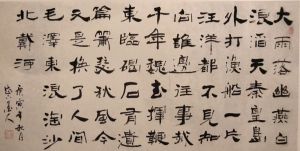 大雨落幽燕白
浪滔天秦皇島
外打魚船一片
汪洋都不見知
向誰邊往事越
千年魏武揮鞭
東臨碣石有遺
篇蕭瑟秋風今
又是換了人間
毛澤東浪淘沙
北戴河
庚寅年秋月